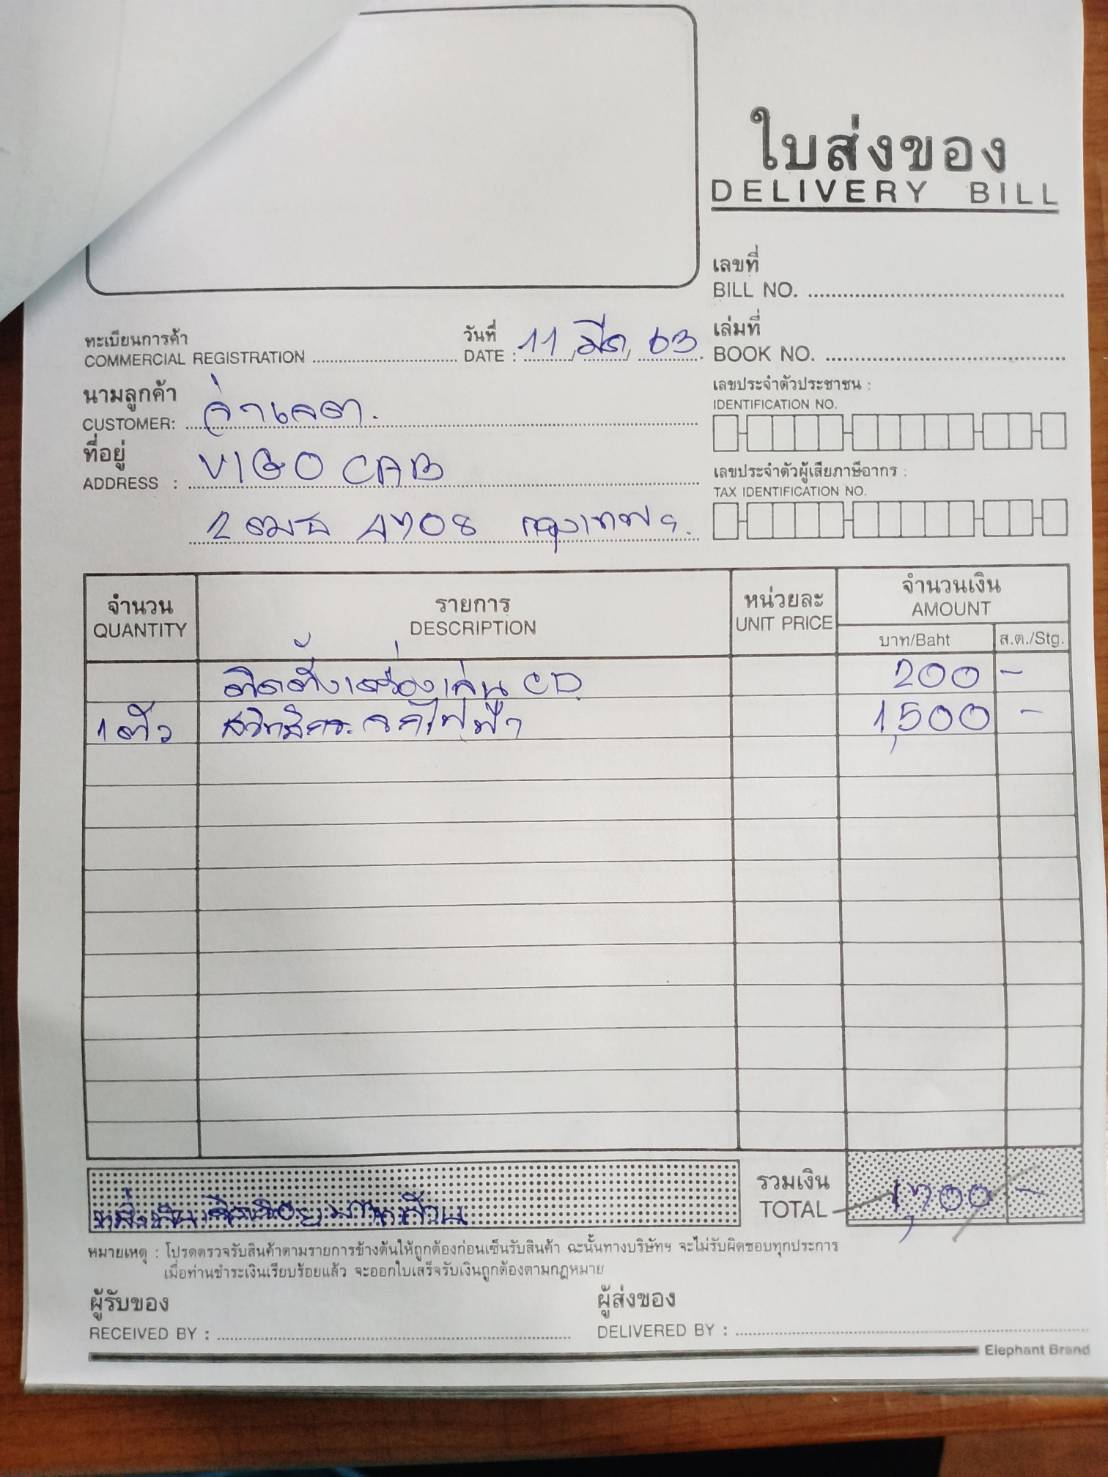 ใบส่งของ
DELIVERY BILL
เลขที่
BILL NO.
ทะเบียนการค้า
COMMERCIAL REGISTRATION
วันที่
DATE : 11 มีค, 63
เล่มที่
BOOK NO.
นามลูกค้า
CUSTOMER:
เลขประจำตัวประชาชน :
IDENTIFICATION NO.
ที่อยู่
ADDRESS : VIGO CAB
เลขประจำตัวผู้เสียภาษีอากร :
TAX IDENTIFICATION NO.
4708 กรุงเทพฯ.
จำนวน
QUANTITY
รายการ
DESCRIPTION
หน่วยละ
UNIT PRICE
จำนวนเงิน
AMOUNT
บาท/Baht
ส.ต./Stg.
ติดตั้งเครื่องเล่น CD. 200 -
1 ตัว สวิทช์กระจกไฟฟ้า 1,500 -
รวมเงิน
TOTAL 1,700 -
หมายเหตุ : โปรดตรวจรับสินค้าตามรายการข้างต้นให้ถูกต้องก่อนเซ็นรับสินค้า ฉะนั้นทางบริษัทฯ จะไม่รับผิดชอบทุกประการ
เมื่อท่านชำระเงินเรียบร้อยแล้ว จะออกใบเสร็จรับเงินถูกต้องตามกฎหมาย
ผู้รับของ
RECEIVED BY :
ผู้ส่งของ
DELIVERED BY :
Elephant Brand